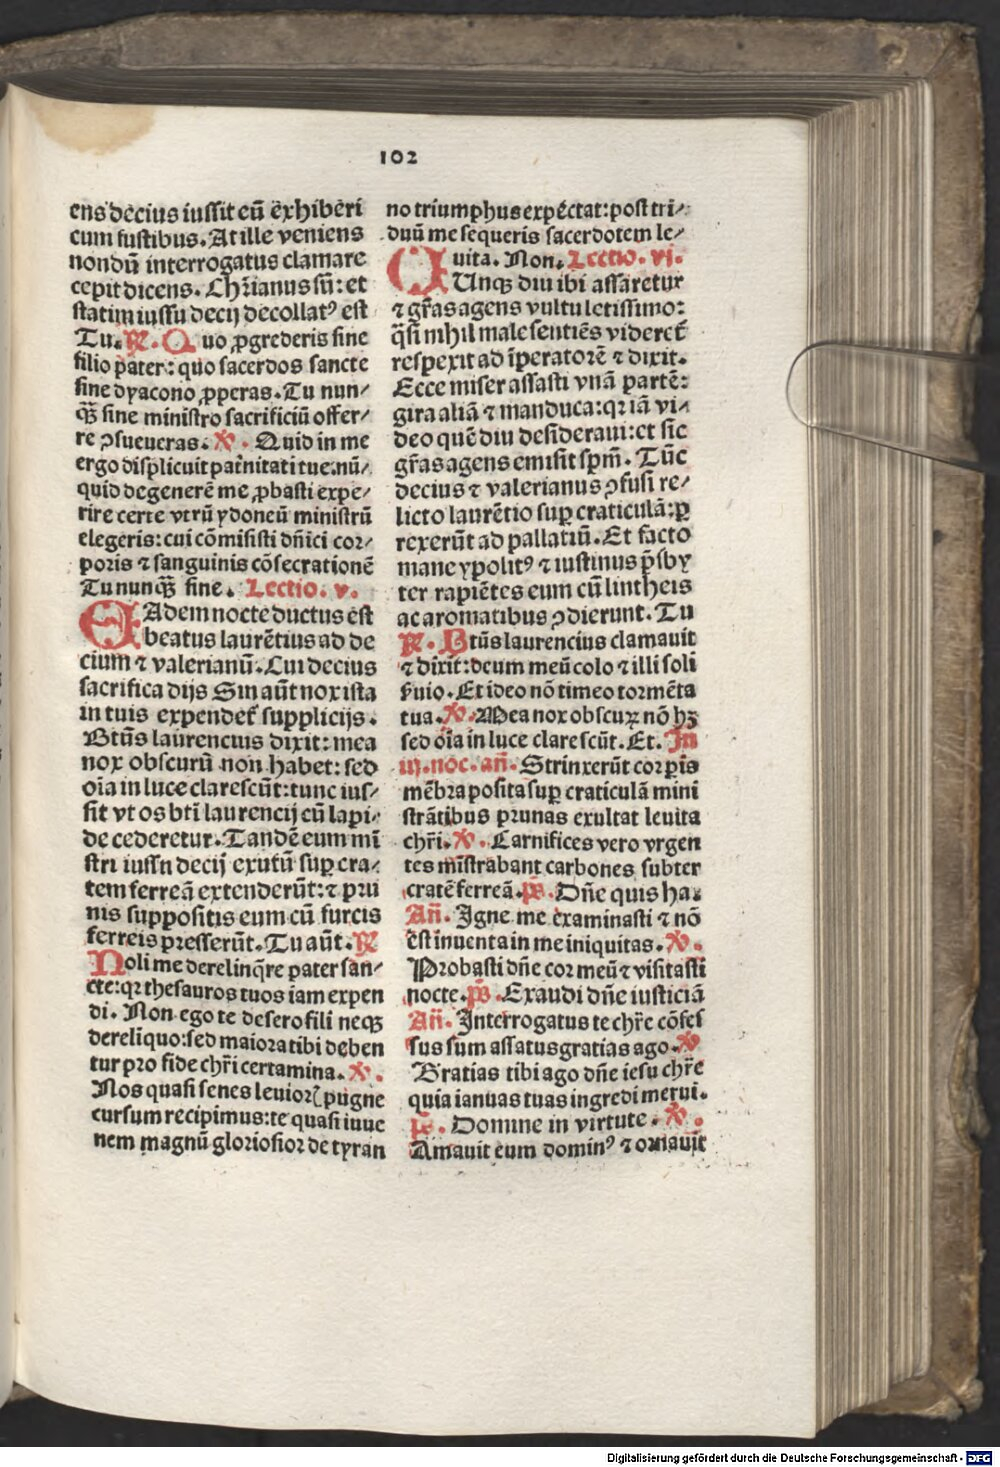 102
ens decius iussit eū exhiberi
cum fustibus. At ille veniens
nondū interrogatus clamare
cepit dicens. Chr̄ianus sū: et
statim iussu decij decollatꝰ est
Tu. ℟. Quo ꝓgrederis sine
filio pater: quo sacerdos sancte
sine dyacono ꝓperas. Tu nun⸗
qꝫ̄ sine ministro sacrificiū offer⸗
re ꝯsueueras. ℣. Quid in me
ergo displicuit pat̄nitati tue: nū⸗
quid degenerē me ꝓbasti expe⸗
rire certe vtrū ydoneū ministrū
elegeris: cui cōmisisti dn̄ici cor⸗
poris ⁊ sanguinis cōsecrationē
Tu nunqꝫ̄ sine. Lectio. v.
EAdem nocte ductus est
beatus laurētius ad de
cium ⁊ valerianū. Cui decius
sacrifica dijs Sin aūt nox ista
in tuis expendet̄ supplicijs.
Btūs laurencius dixit: mea
nox obscurū non habet: sed
oīa in luce clarescūt: tunc ius⸗
sit vt os bt̄i laurencij cū lapi⸗
de cederetur. Tandē eum mī
stri iussu decij exutū suꝑ cra⸗
tem ferreā extenderūt: ⁊ prui
nis suppositis eum cū furcis
ferreis presserūt. Tu aūt. ℟
Noli me derelinq̄re pater san⸗
cte: qꝛ thesauros tuos iam expen
di. Non ego te desero fili neqꝫ
derelinquo: sed maiora tibi deben
tur pro fide chr̄i certamina. ℣.
Nos quasi senes leuioꝝ pugne
cursum recipimus: te quasi iuue
nem magnū gloriosior de tyran
no triumphus expectat: post tri⸗
duū me sequeris sacerdotem le⸗
uita. Non. Lectio. vj.
QUnqꝫ diu ibi assaretur
⁊ gr̄as agens vultu letissimo:
q̄si nihil male sentiēs videret̄
respexit ad īperatorē ⁊ dixit.
Ecce miser assasti vnā partē:
gira aliā ⁊ manduca: qꝛ iā vi⸗
deo quē diu desideraui: et sic
gr̄as agens emisit spm̄. Tūc
decius ⁊ valerianus ꝯfusi re⸗
licto laurētio suꝑ craticulā: ꝑ
rexerūt ad pallatiū. Et facto
mane ypolitꝰ ⁊ iustinus p̄sby
ter rapiētes eum cū lintheis
ac aromatibus ꝯdierunt. Tu
℟. Btūs laurencius clamauit
⁊ dixit: deum meū colo ⁊ illi soli
ẜuio. Et ideo nō timeo tormēta
tua. ℣. Mea nox obscuꝝ nō hꝫ
sed oīa in luce clarescūt. Et. In
iij. noc. an̄. Strinxerūt corꝑis
mēbra posita suꝑ craticulā mini
strātibus prunas exultat leuita
chr̄i. ℣. Carnifices vero vrgen
tes mīstrabant carbones subter
cratē ferreā. ps̄. Dn̄e quis ha.
An̄. Igne me examinasti ⁊ nō
est inuenta in me iniquitas. ℣.
Probasti dn̄e cor meū ⁊ visitasti
nocte. ps̄. Exaudi dn̄e iusticiā
An̄. Interrogatus te chr̄e cōfes
sus sum assatus gratias ago. ℣
Gratias tibi ago dn̄e iesu chr̄e
quia ianuas tuas ingredi merui.
ps̄. Domine in virtute. ℣.
Amauit eum dominꝰ ⁊ ornauit
Digitalisierung gefördert durch die Deutsche Forschungsgemeinschaft - DFG